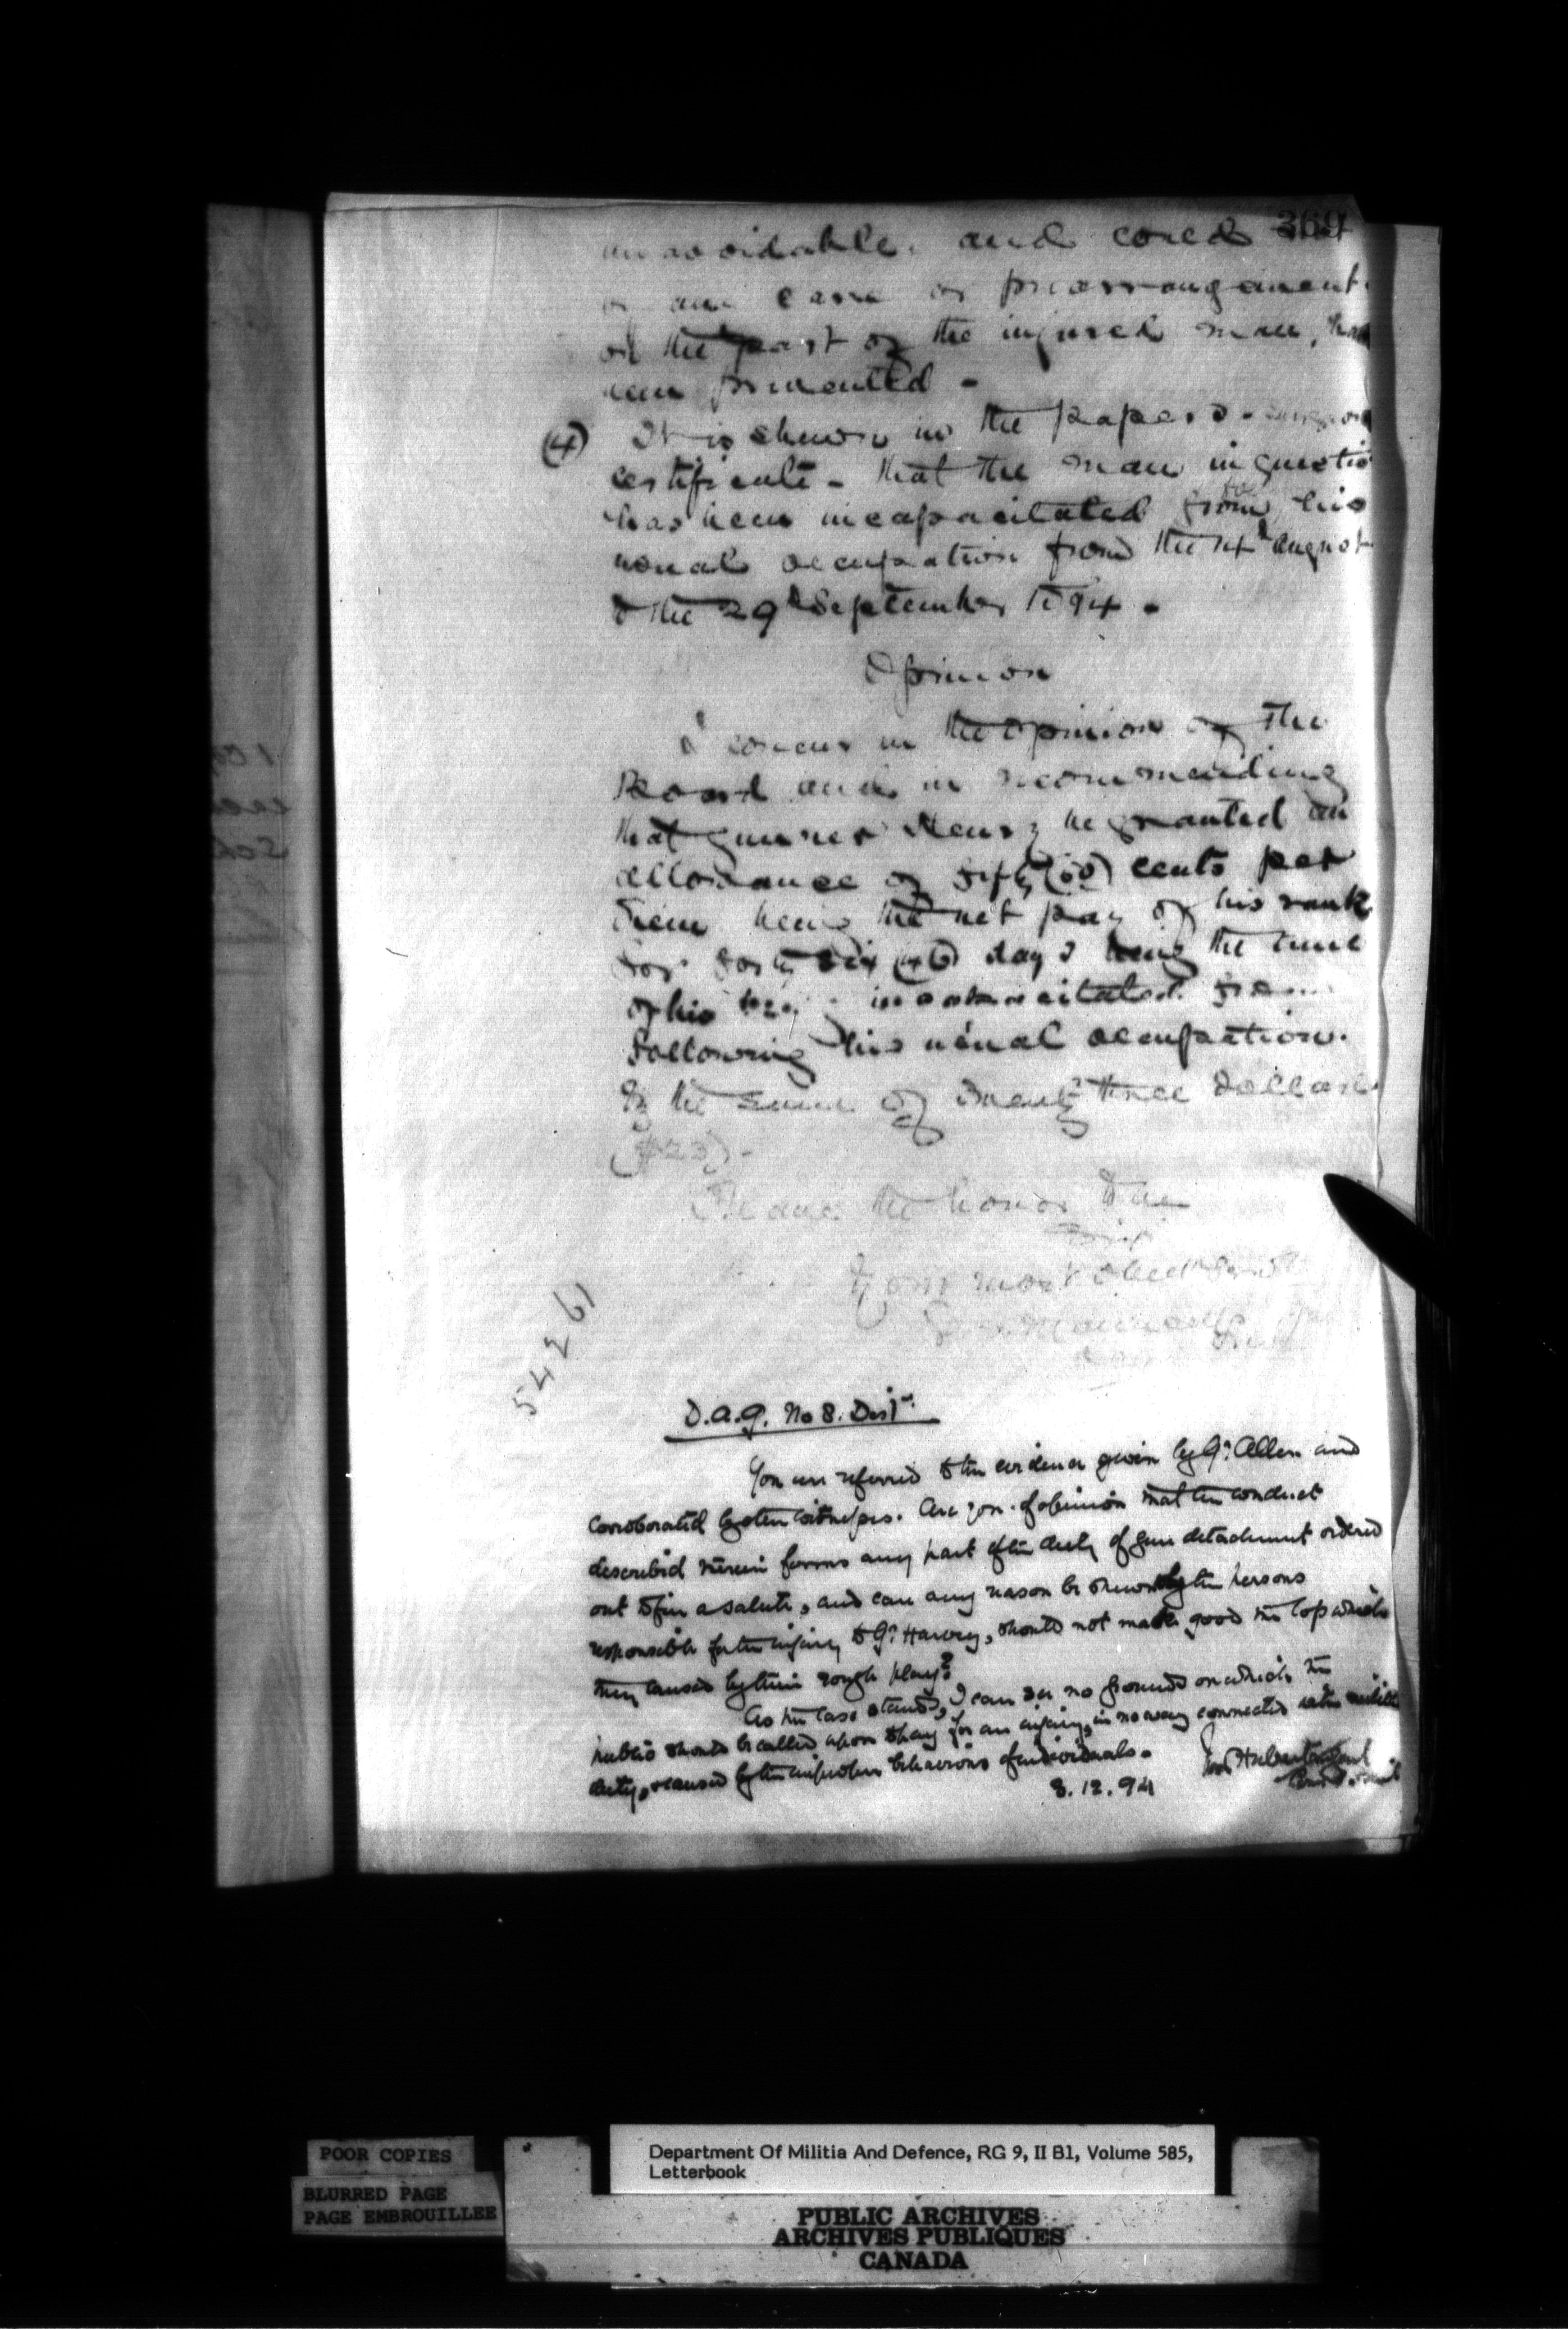 369
unavoidable, and could not
by any care or prearrangement
on the part of the injured man, have
been prevented -
(4) It is shewn in the papers -
certificate - that the man in question
has been incapacitated from his
usual occupation from the 14th August
to the 29th September 1894 -
Opinion
I concur in the opinion of the
Board and in recommending
that Gunner be granted an
allowance of fifty (50) cents per
diem being the net pay of his rank
for forty six (46) days being the time
of his being incapacitated from
following his usual occupation.
the sum of twenty three dollars
($23) -
I have the honor to be
Sir
Your most obedt Servt
D.A.G. No 8. Distt.
You are referred to the evidence given by Gr. Allen and
corroborated by other witnesses. Are you of opinion that the conduct
described therein forms any part of the duty of gun detachment ordered
out to fire a salute, and can any reason be shewn why the persons
responsible for the injury to Gr. Harvey, should not make good the loss which
they caused by their rough play?
As the case stands, I can see no grounds on which the
public should be called upon to pay for an injury, in no way connected with militia
duty, & caused by the improper behaviour of individuals.
8.12.94
54261
POOR COPIES
BLURRED PAGE
PAGE EMBROUILLEE
Department Of Militia And Defence, RG 9, II B1, Volume 585,
Letterbook
PUBLIC ARCHIVES
ARCHIVES PUBLIQUES
CANADA